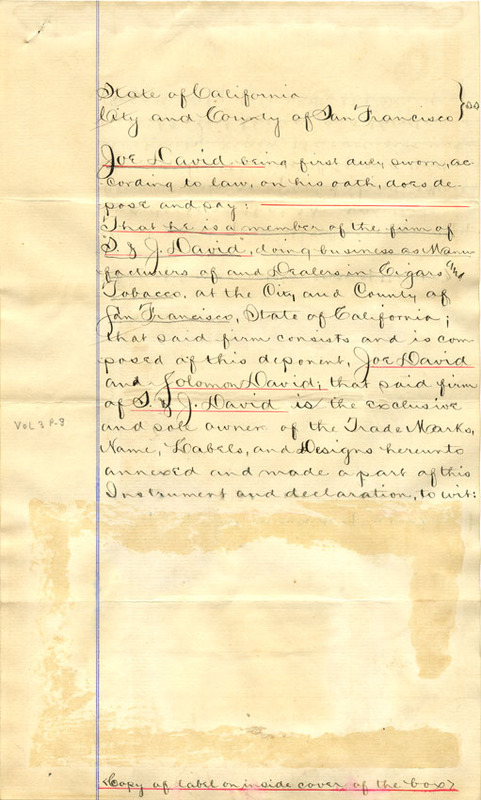 State of California
City and County of San Francisco } ss
Joe David being first duly sworn, ac-
cording to law, on his oath, does de-
pose and say:
That he is a member of the firm of
"S. & J. David", doing business as Manu-
facturers of and Dealers in Cigars and
Tobacco, at the City and County of
San Francisco, State of California;
that said firm consists and is com-
posed of this deponent, Joe David
and Solomon David; that said firm
of S. & J. David is the exclusive
and sole owner of the Trade Marks,
Name, Labels, and Designs hereunto
annexed and made a part of this
Instrument and declaration, to wit:
VOL 3 P-8
<Copy of label on inside cover of the box>